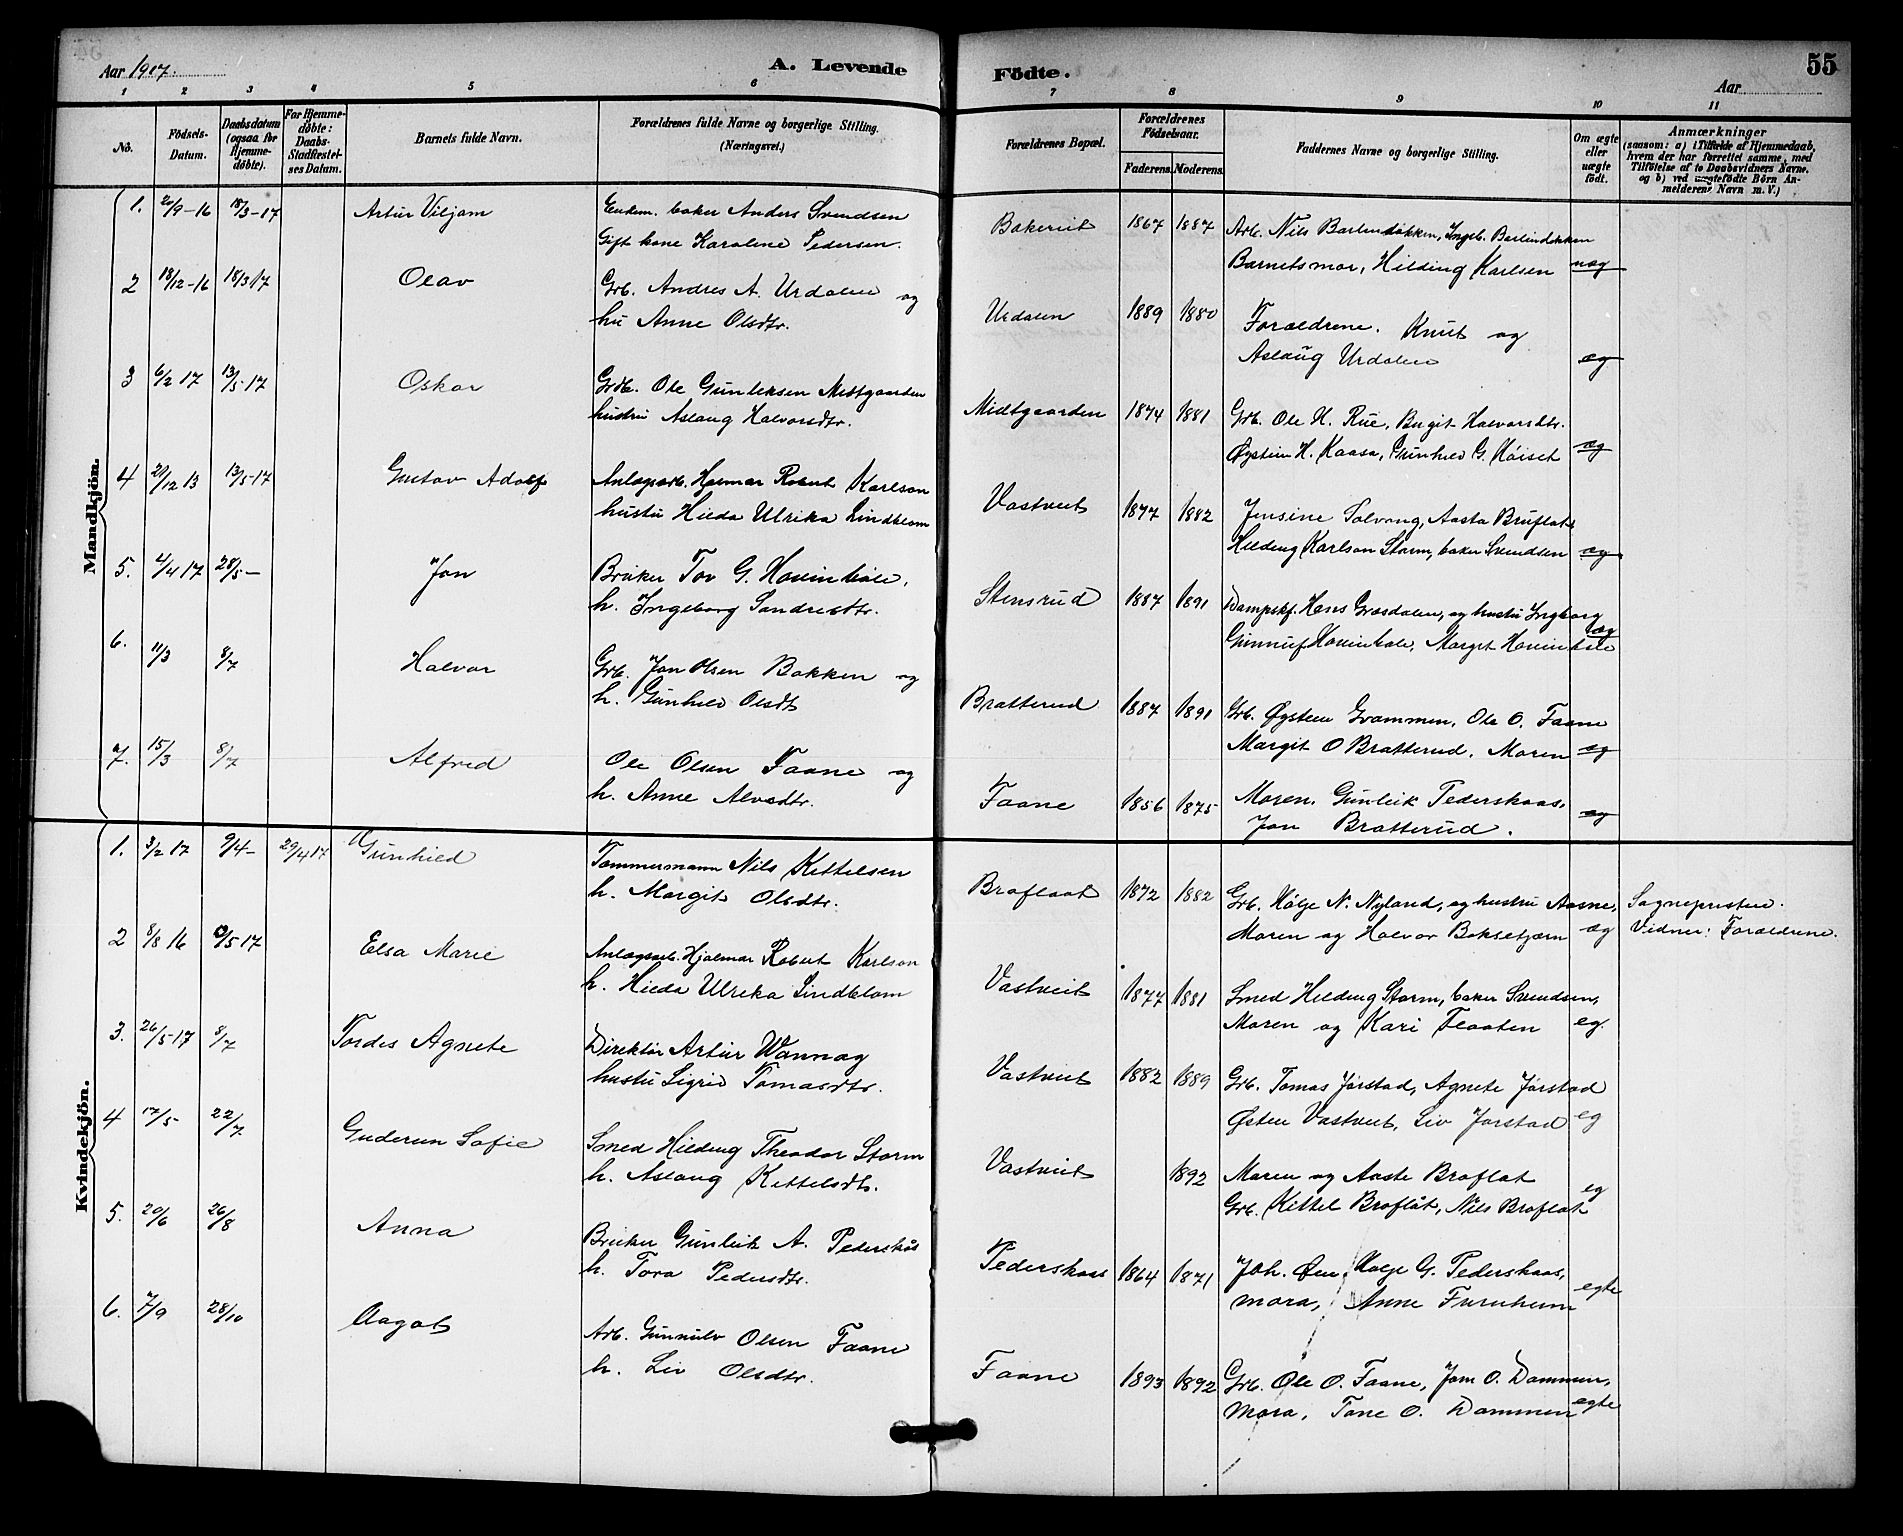 Aar 1917.
A. Levende
Födte.
55
Aar
1 2 3 4 5 6 7 8 9 10 11
No.
Födsels-Datum.
Daabsdatum (ogsaa for Hjemme-döbte).
For Hjemme-döbte: Daabs-Stadfæstel-ses Datum.
Barnets fulde Navn.
Forældrenes fulde Navne og borgerlige Stilling. (Næringsvei.)
Forældrenes Bopæl.
Forældrenes Födselsaar.
Faderens. Moderens.
Faddernes Navne og borgerlige Stilling.
Om ægte eller uægte födt.
Anmærkninger
(saasom: a) i Tilfælde af Hjemmedaab, hvem der har forrettet samme, med Tilföielse af to Daabsvidners Navne. og b) ved uægtefödte Börn An-melderens Navn m. V.)
Mandkjön.
1. 2/9-16 18/3-17 Artur Viljam Enkem. baker Anders Svendsen Bakeriet 1867 1887 Arb. Nils Barlindøkken, Ingeb. Barlindøkken
Gift kone Karoline Pedersen. Barnetsmor, Hilding Karlsen uæg
2 18/12-16 18/3 17 Olav Grb. Andres A. Urdalen og Urdalen 1889 1880 Forældrene. Knut og
hu Anne Olsdtr. Aslaug Urdalen æg
3 6/2 17 13/5-17 Oskar Grdb. Ole Gunleksen Midtgaarden Midtgaarden 1874 1881 Grb. Ole H. Rue, Birgit Halvorsdtr.
hustru Aslaug Halvorsdtr. Øystein H. Kaasa, Gunhild G. Høiset æg
4 29/12 13 13/5-17 Gustav Adolf Anlægsarb. Hjalmar Robert Karlson Vastveit 1877 1882 Jensine Solvang, Aasta Bruflat,
hustru Hilda Ulrika Lindblom Hilding Karlson Storm, baker Svendsen æg
5. 4/4 17 28/5- Jon Bruker Tov G. Hovinbøle, Stensrud 1887 1891 Dampskf. Hans Græsdalen, og hustru Ingborg
h. Ingeborg Sondresdtr. Gunnuf Hovinbøle, Margit Hovinbøle æg
6. 11/3 8/7 Halvor Grb. Jon Olsen Bakken og Bratterud 1887 1891 Grb. Øystein Grammen, Ole O. Faane
h. Gunhild Olsdt Margit O Bratterud. Moren æg
7. 15/3 8/7 Alfred Ole Olsen Faane og Faane 1856 1875 Moren. Gunleik Pederskaas,
h. Anne Alvsdtr. Jon Bratterud. æg
Kvindekjön.
1. 3/2 17 9/4- 29/4 17 Gunhild Tømmermann Nils Kittelsen Broflaat 1872 1882 Grb. Hølje N. Nyland, og hustru Aasne, Sognepresten.
h. Margit Olsdtr. Moren og Halvor Boksetjærn æg Vidner: Forældrene.
2 8/8 16 /5 17 Elsa Marie Anlægsarb. Hjalmar Robert Karlson Vastveit 1877 1881 Smed Hilding Storm, baker Svendsen,
h. Hilda Ulrika Lindblom Moren og Kari Flaaten eg.
3. 26/5-17 8/7 Tordis Agnete Direktør Artur Wannag Vastveit 1882 1889 Grb. Tomas Jørstad, Agnete Jørstad
hustu Sigrid Tomasdtr. Østen Vastveit, Liv Jørstad eg
4 17/5- 22/7 Guderun Sofie Smed Hilding Theodor Storm Vastveit 1892 Moren og Aaste Broflat
h. Aslaug Kittelsdt. Grb. Kittel Broflat, Nils Broflat eg
5. 20/6 26/8 Anna Bruker Gunleik A. Pederskås Pederskaas 1864 1871 Joh. Øen, Hølje G. Pederskaas,
h. Tora Pedersdtr. mora, Anne Furuheim egte
6. 7/9 28/10 Aagot Arb. Gunnulv Olsen Faane Faane 1893 1892 Grb. Ole O. Faane, Jom O. Dammen,
h. Liv Olsdtr. Mora, Tone O. Dammen egte